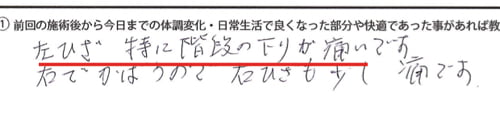 ① 前回の施術後から今日までの体調変化・日常生活で良くなった部分や快適であった事があれば教
左ひざ 特に階段の下りが痛いです
右でかばうので 右ひざも少し 痛です